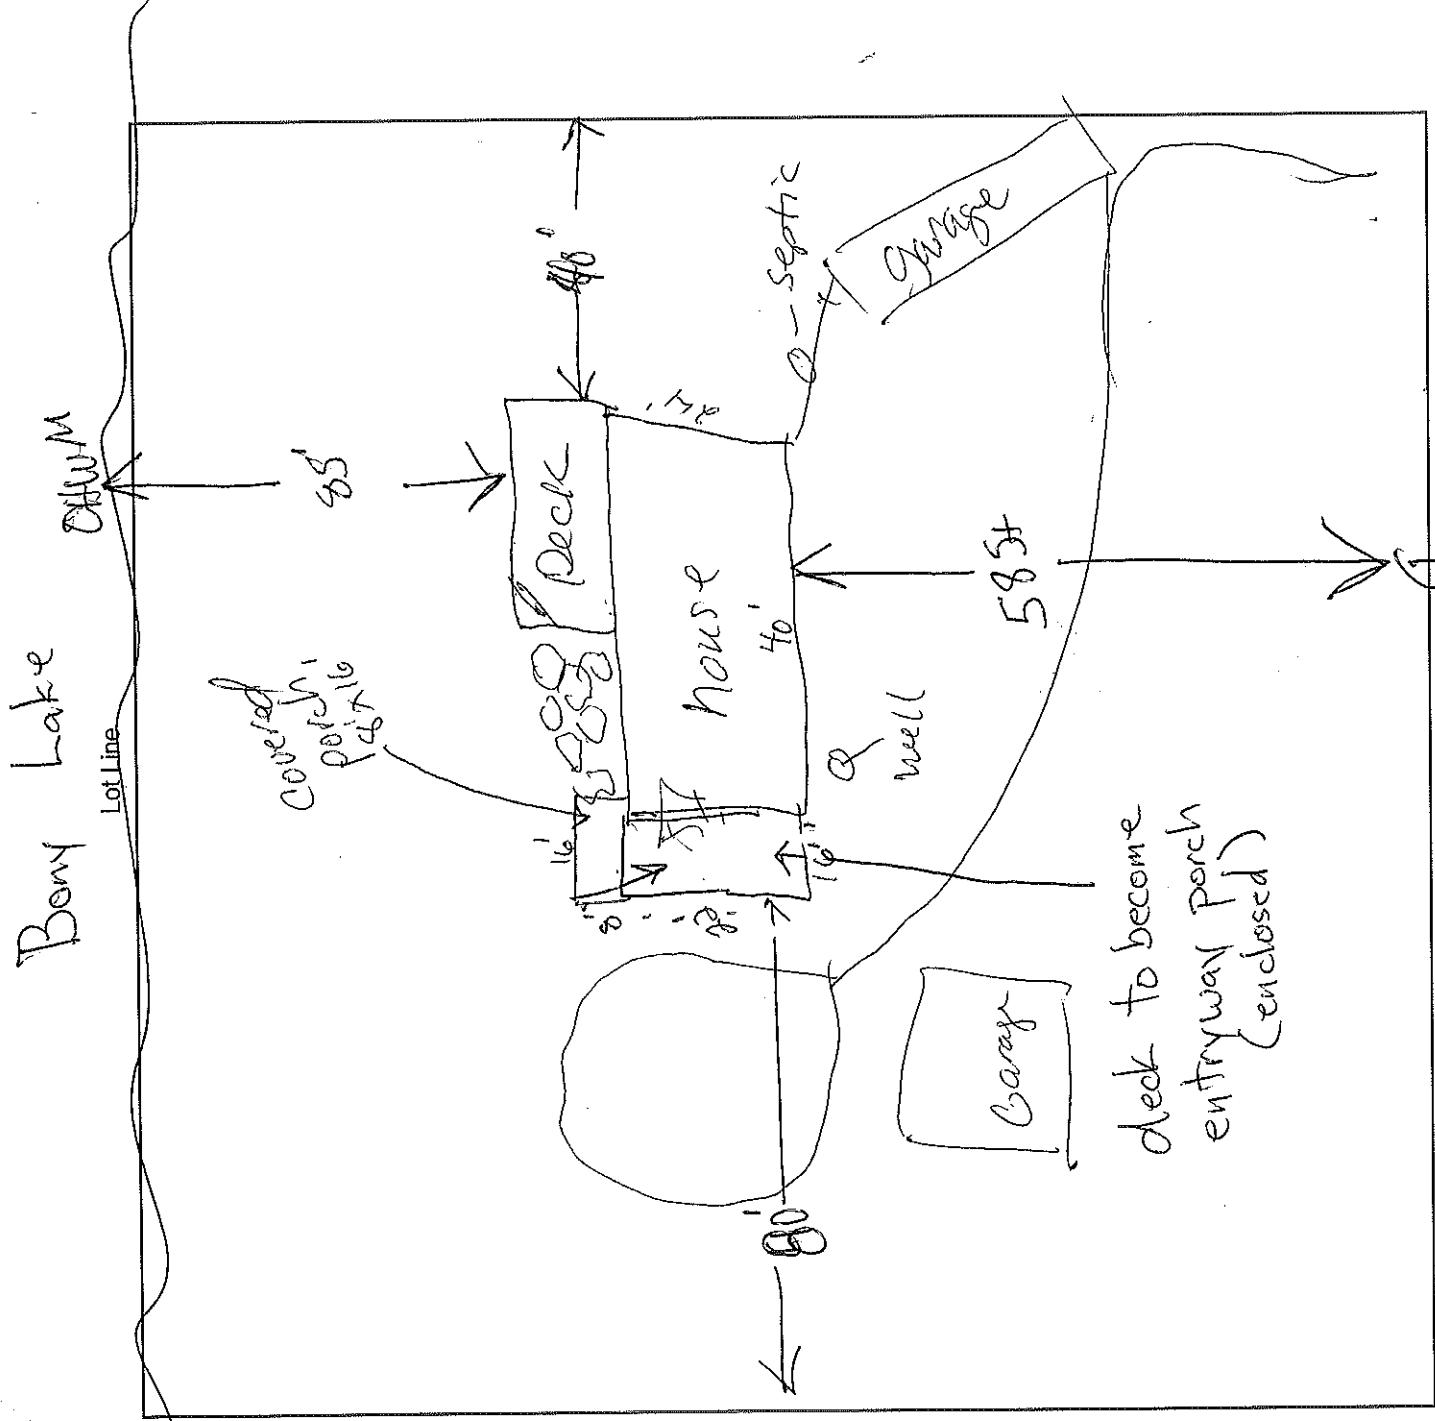 Bony Lake
Lot Line
OHWM
85'
covered
porch
8x16'
Deck
house
40'
16'
8'
16'
well
O - septic
garage
585+
80'
Garage
deck to become
entryway porch
(enclosed)